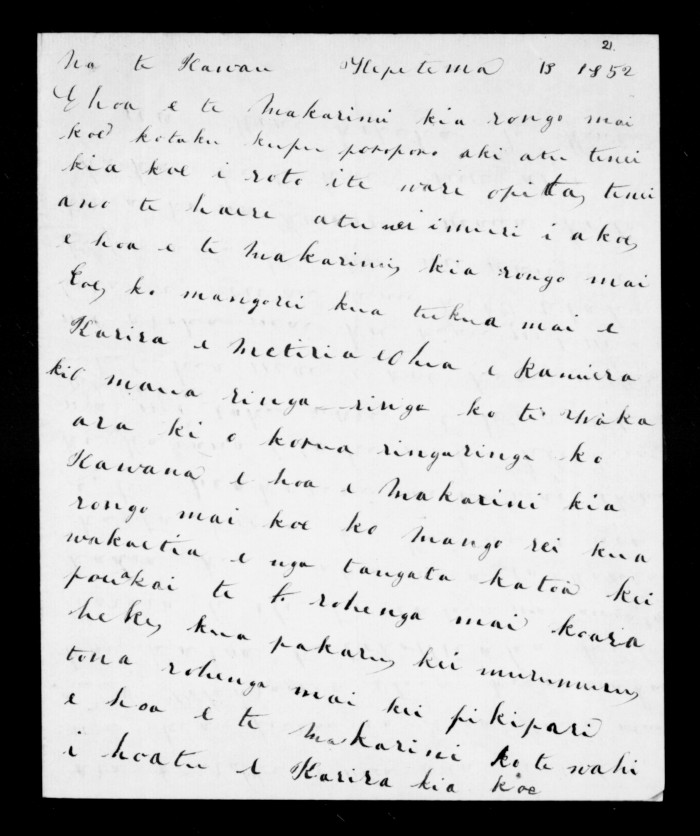 21
Na te Kawau Hepetema 13 1852
E hoa e te Makarini kia rongo mai
koe kotaku kupu poroporo aki atu tenei
kia koe i roto ite ware opitta, tenei
ano te haere atu nei i muri i a koe,
e hoa e te Makarini, kia rongo mai
koe, ko mangorei kua tukua mai e
Karira e Metiria e Ohua e Kamiera
ki o mana ringa ringa ko te waka
ara ki o korua ringaringa ko
Kawana e hoa e Makarini kia
rongo mai koe ko Mango rei kua
wakaetia e nga tangata katoa kei
pouakai te rohenga mai koara
heke, kua pakaru, kei murumuru,
tona rohenga mai kei pikipari
e hoa e te Makarini ko te wahi
i hoatu e Karira kia koe